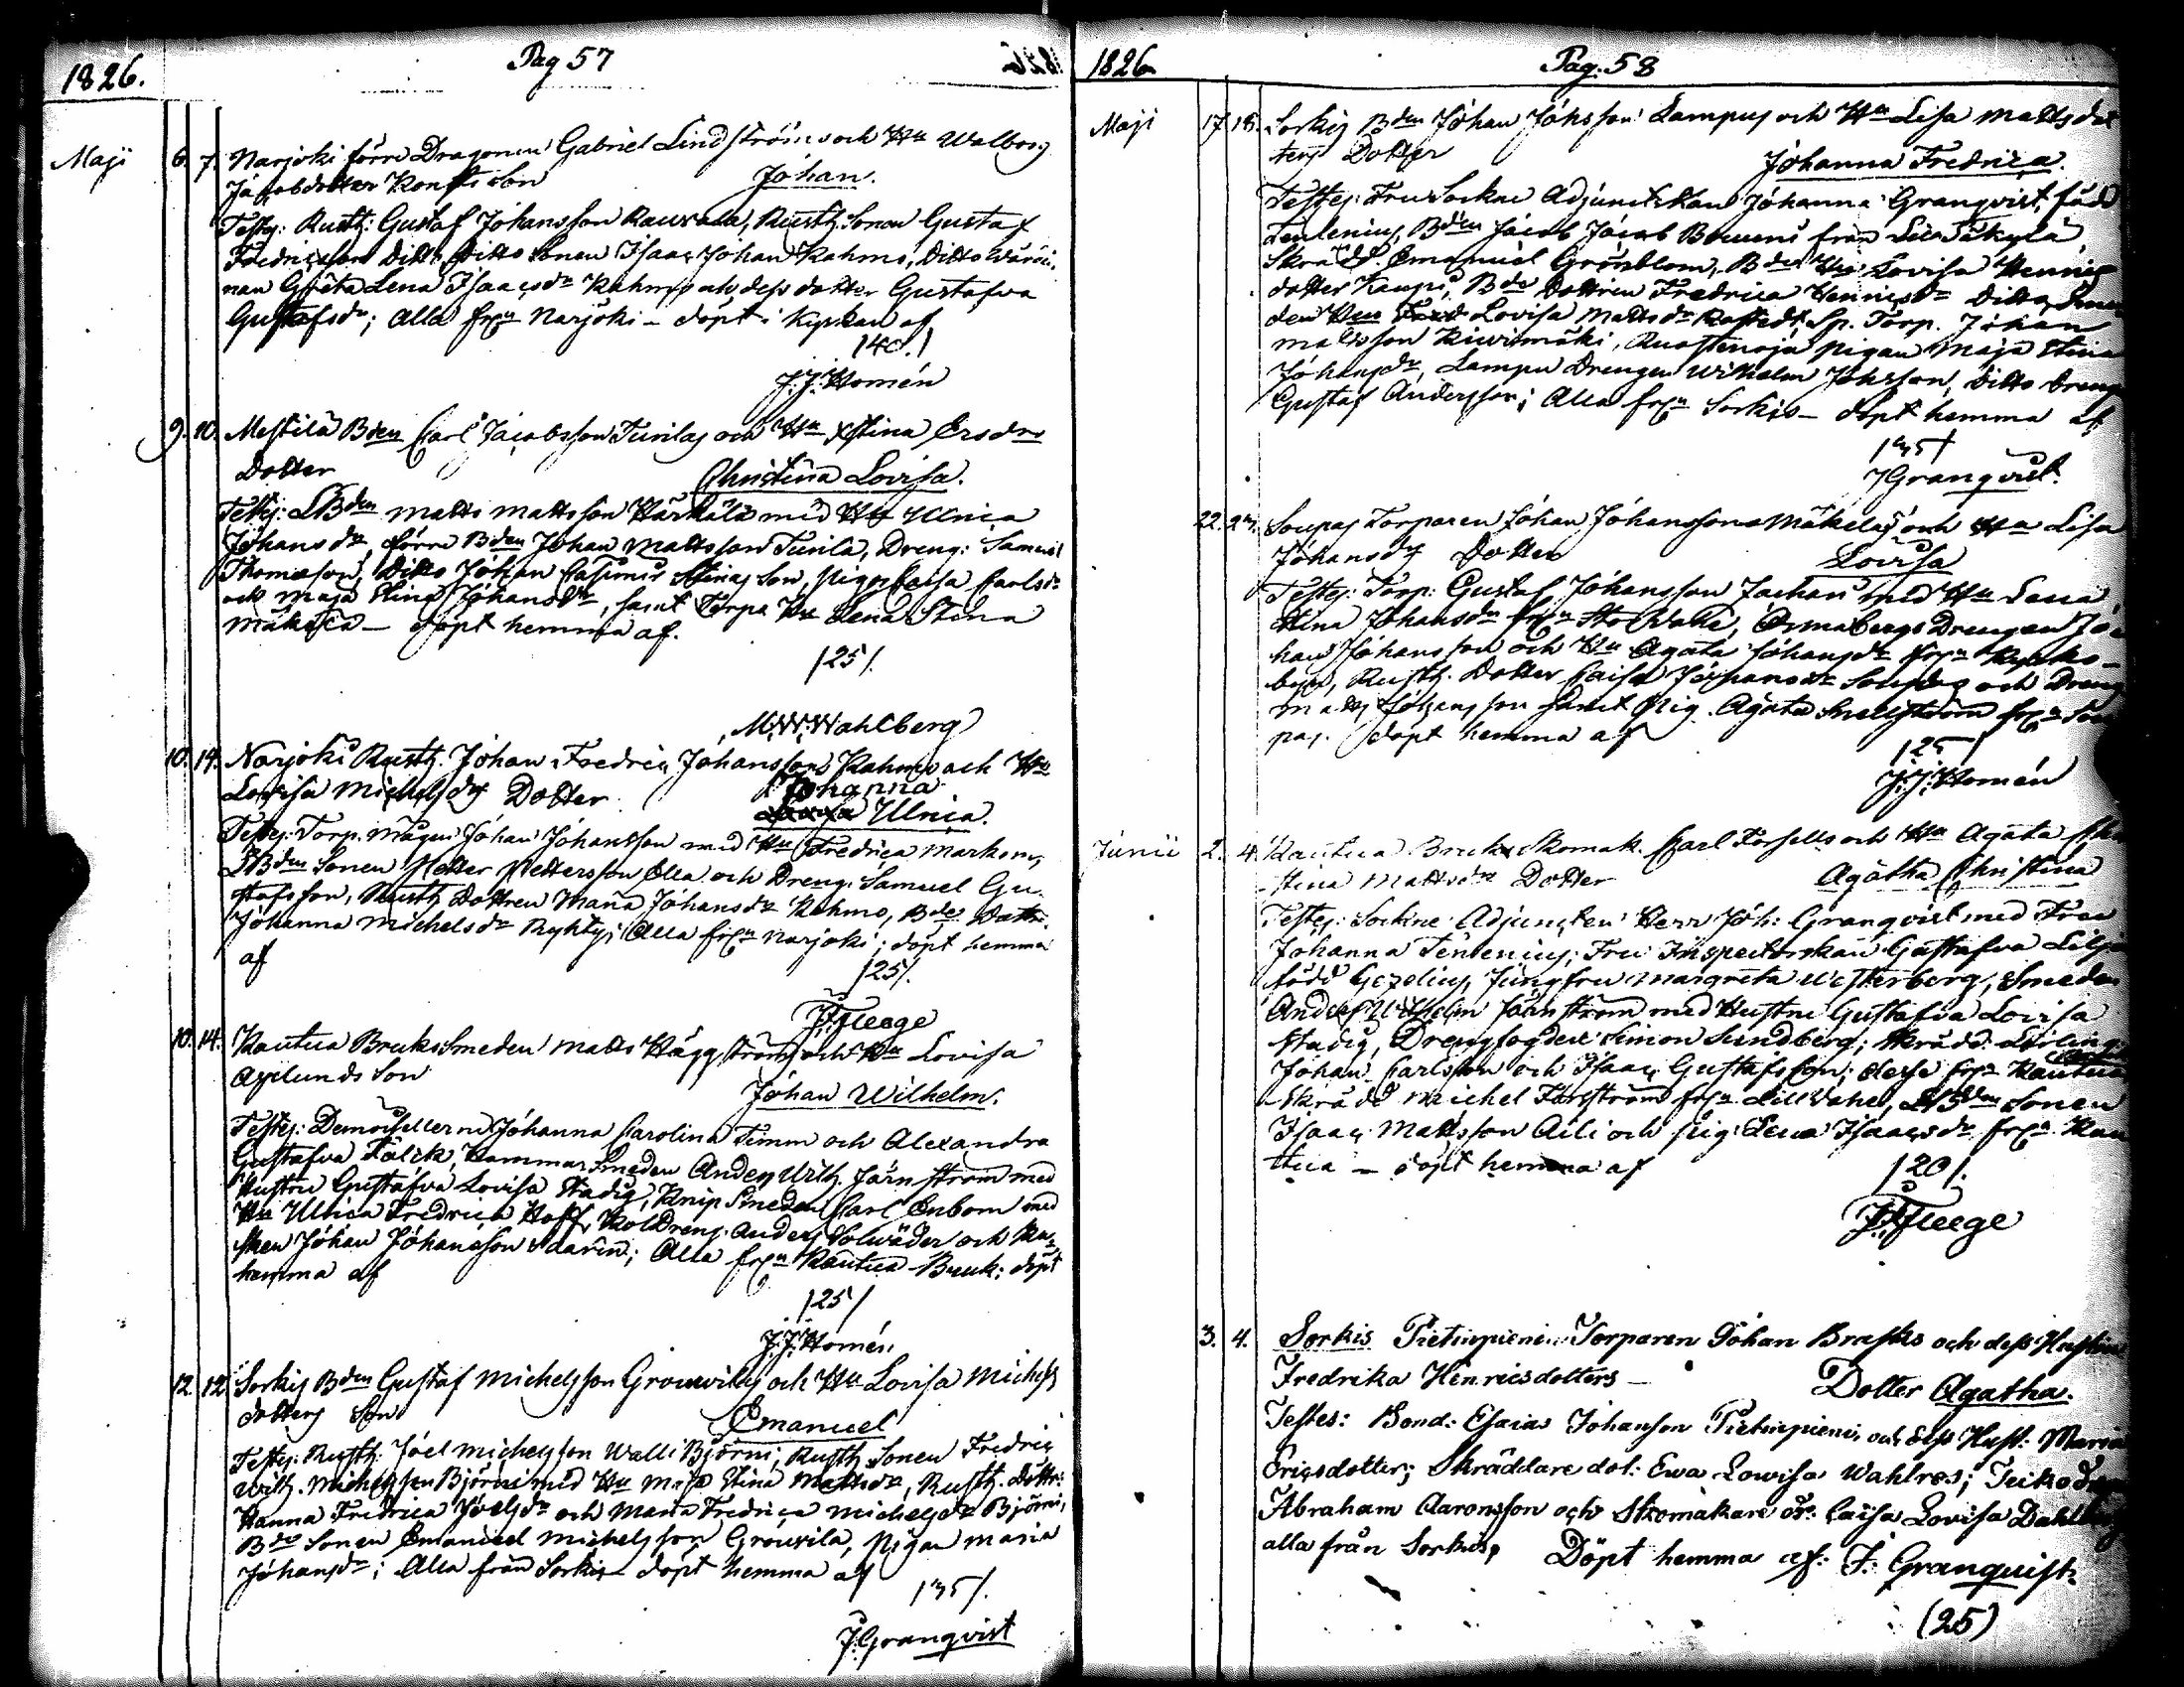 1826.
Pag 57
Maji
6. 7. Narjoki förre Dragonen Gabriel Lindströms och Hu Walborg
Jacobsdotter Konsts Son
Johan.
Testes: Rusth: Gustaf Johansson Rauvala, Rusth. Sonen Gustaf
Fredricsson Ditto, Ditto Sonen Isaac Johan Kahmo, Ditto
nan Greta Lena Isaacsdr Kahmo och dess dotter Gustafva
Gustafsdr; Alla frn Narjoki – döpt i Kyrkan af
/40./
J.J. Homén
9. 10. Mestilä Bden Carl Jacobsson Turilas och Hu Xstina Ersdrs
Dotter
Christina Lovisa.
Testes: LBden Matts Mattsson Härkälä med Hu Ulrica
Johansdr, förre Bden Johan Mattsson Turila, Dreng: Samuel
Thomasson, Ditto Johan Casimir Stinas Son, Pigor Caisa Carlsdr
och Maja Stina Johansdr, samt Torpe Hu Lena Stina
– döpt hemma af.
/25/.
M.W. Wahlberg
10. 14. Narjoki Rusth. Johan Fredric Johanssons Kahmo och Hu
Lovisa Michelsdrs Dotter
Johanna
Ulrica.
Testes: Torp. Mågen Johan Johansson med Hu Fredrica Markoni,
LBden Sonen Petter Pettersson Ella och Dreng. Samuel Gu-
stafsson, Rusth. Dottren Maria Johansdr Kahmo, Bde Dottr.
Johanna Michelsdr Ryhtyi Alla frn Narjoki; döpt hemma
af
/25/.
J. Fleege
10. 14. Kautua Bruks Smeden Matts Häggströms och Hu Lovisa
Axelunds Son
Johan Wilhelm.
Testes: Demoisellerne Johanna Carolina Timm och Alexandra
Gustafva Falck, Hammar Smeden Anders Wilh. Järnström med
Hustru Gustafva Lovisa Stadig, Knip Smeden Carl Enbom med
Hu Ulrica Fredrica Hoff, Kol Dreng. Anders Solwäder och Ku-
sken Johan Johansson; Alla frn Kautua Bruk; döpt
hemma af
/25/
J.J. Homén
12. 12 Sorkis Bden Gustaf Michelsson Grouvilas och Hu Lovisa Michels
dotters Son
Emanuel
Testes: Rusth. Joel Michelsson Walli Björni, Rusth. Sonen Fredric
Wilh. Michelsson Björni med Hu Maja Stina Mattsdr, Rusth. Dottr:
Hanna Fredrica Joelsdr och Maria Fredrica Michelsdr Björni,
Bde Sonen Emanuel Michelsson Grouvila, Pigan Maria
Johansdr; Alla från Sorkis – döpt hemma af
/35/.
J. Granqvist
1826
Pag. 58
Maji
17. 18. Sorkis Bden Johan Johsson Lampus och Hu Lisa Mattsdot
ters Dotter
Johanna Fredrica.
Testes: Fru Sockne Adjunctskan Johanna Granqvist, född
Tenlenius, Bden Jacob Jacob Bouvens från Säkylä
Skrädd. Emanuel Grönblom, Bde Hu Lovisa Hennis
dotter Kaupi, Bde Dottren Fredrica Hennisdr Ditto, Sme
den Hu Lovisa Mattsdr, Sp. Torp. Johan
Mattsson Kivimäki, Ruostenoja pigan Maja Stina
Johansdr, Lampu Drengen Wilhelm Johsson, Ditto Dreng
Gustaf Andersson; Alla frn Sorkis – döpt hemma af
/35/
J Granqvist.
22. 23. Soupas Torparen Johan Johanssons Mäkelas och Hu Lisa
Johansdrs Dotter
Lovisa
Testes: Torp: Gustaf Johansson Jachari med Hu Lena
Stina Johansdr frn Stor Wahe, Drengen Jo
han Johansson och Hu Agata Johansdr frn
by, Rusth. Dotter Caisa Johansdr Soupas och Dreng
Matts Johansson samt Pig. Agata Snellström frn Sou
pas. döpt hemma af
/25/
J.J. Homén
Junii
2. 4. Kautua Bruks Skomak. Carl Forssells och Hu Agata Chri
stina Mattsdrs Dotter
Agatha Christina
Testes: Sockne Adjuncten Herr Joh: Granqvist med Fru
Johanna Tenlenius, Fru Inspectorskan Gustafva Lilja
född Gezelius, Jungfru Margreta Westerberg, Smeden
Anders Wilhelm Järnström med Hustru Gustafva Lovisa
Stadig, Drengfogden Simon Sundberg; Skrädd. Lärling.
Johan Carlsson och Isaac Gustafsson; desse frn Kautua
Skrädd Michel Forsström frn Lill Wahe, LBden Sonen
Isaac Mattsson Aili och pig. Lena Isaacsdr frn Kau
tua – döpt hemma af
/20/.
J. Fleege
3. 4. Sorkis Pietinpieni Torparen Johan Brasks och dess Hustru
Fredrika Henricsdotters –
Dotter Agatha.
Testes: Bond: Esaias Johanson Pietinpieni och dess Hust: Maria
Ericsdotter; Skräddare dot: Ewa Lowisa Wahlros;
Abraham Aaronsson och Skomakare dr. Caisa Lovisa Dahlberg
alla från Sorkis, Döpt hemma af: J: Granquist.
(25)